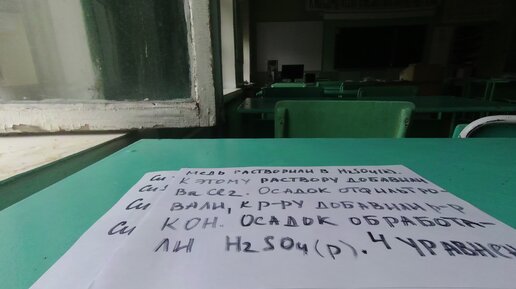 Cu. Медь растворили в H2SO4(к).
К этому раствору добавили
Cu BaCl2. Осадок отфильтро-
Cu вали, к р-ру добавили р-р
Cu KOH. Осадок обработа-
ли H2SO4(р). 4 уравнен